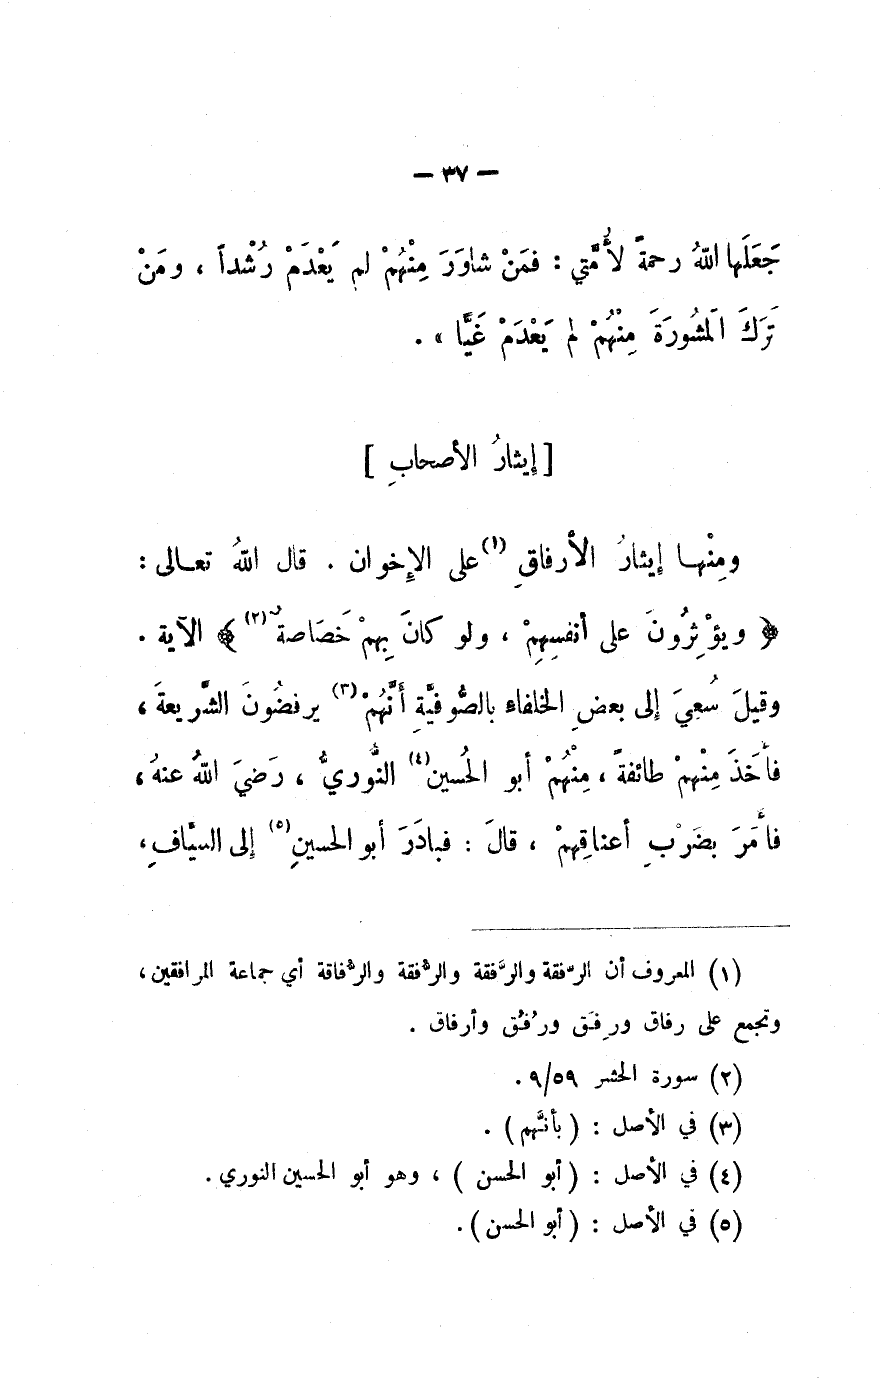 — ٣٧ —
جَعَلَها اللهُ رحمةً لأُمَّتي : فمَنْ شاوَرَ مِنْهُمْ لم يَعْدَمْ رُشْداً ، ومَنْ
تَرَكَ المَشُورَةَ مِنْهُمْ لم يَعْدَمْ غَيًّا » .
[ إيثارُ الأصحابِ ]
ومِنْها إيثارُ الأرفاقِ (١) على الإِخوان . قال اللهُ تعالى :
﴿ ويؤْثِرُونَ على أنفسِهِمْ ، ولو كانَ بِهِمْ خَصَاصةٌ (٢) ﴾ الآية .
وقيلَ سُعِيَ إلى بعضِ الخلفاء بالصُّوفيَّةِ أنَّهُمْ (٣) يرفضُونَ الشَّريعةَ ،
فأَخَذَ مِنْهمْ طائفةً ، مِنْهُمْ أبو الحُسين (٤) النُّوريُّ ، رَضيَ اللهُ عنهُ ،
فأَمَرَ بضَرْبِ أعناقِهِمْ ، قالَ : فبادَرَ أبو الحسينِ (٥) إلى السيَّافِ ،
(١) المعروف أن الرِّفقة والرَّفقة والرُّفقة والرُّفاقة أي جماعة المرافقين ،
وتجمع على رفاق ورِفَق ورُفُق وأرفاق .
(٢) سورة الحشر ٩/٥٩ .
(٣) في الأصل : ( بأنَّهم ) .
(٤) في الأصل : ( أبو الحسن ) ، وهو أبو الحسين النوري .
(٥) في الأصل : ( أبو الحسن ) .